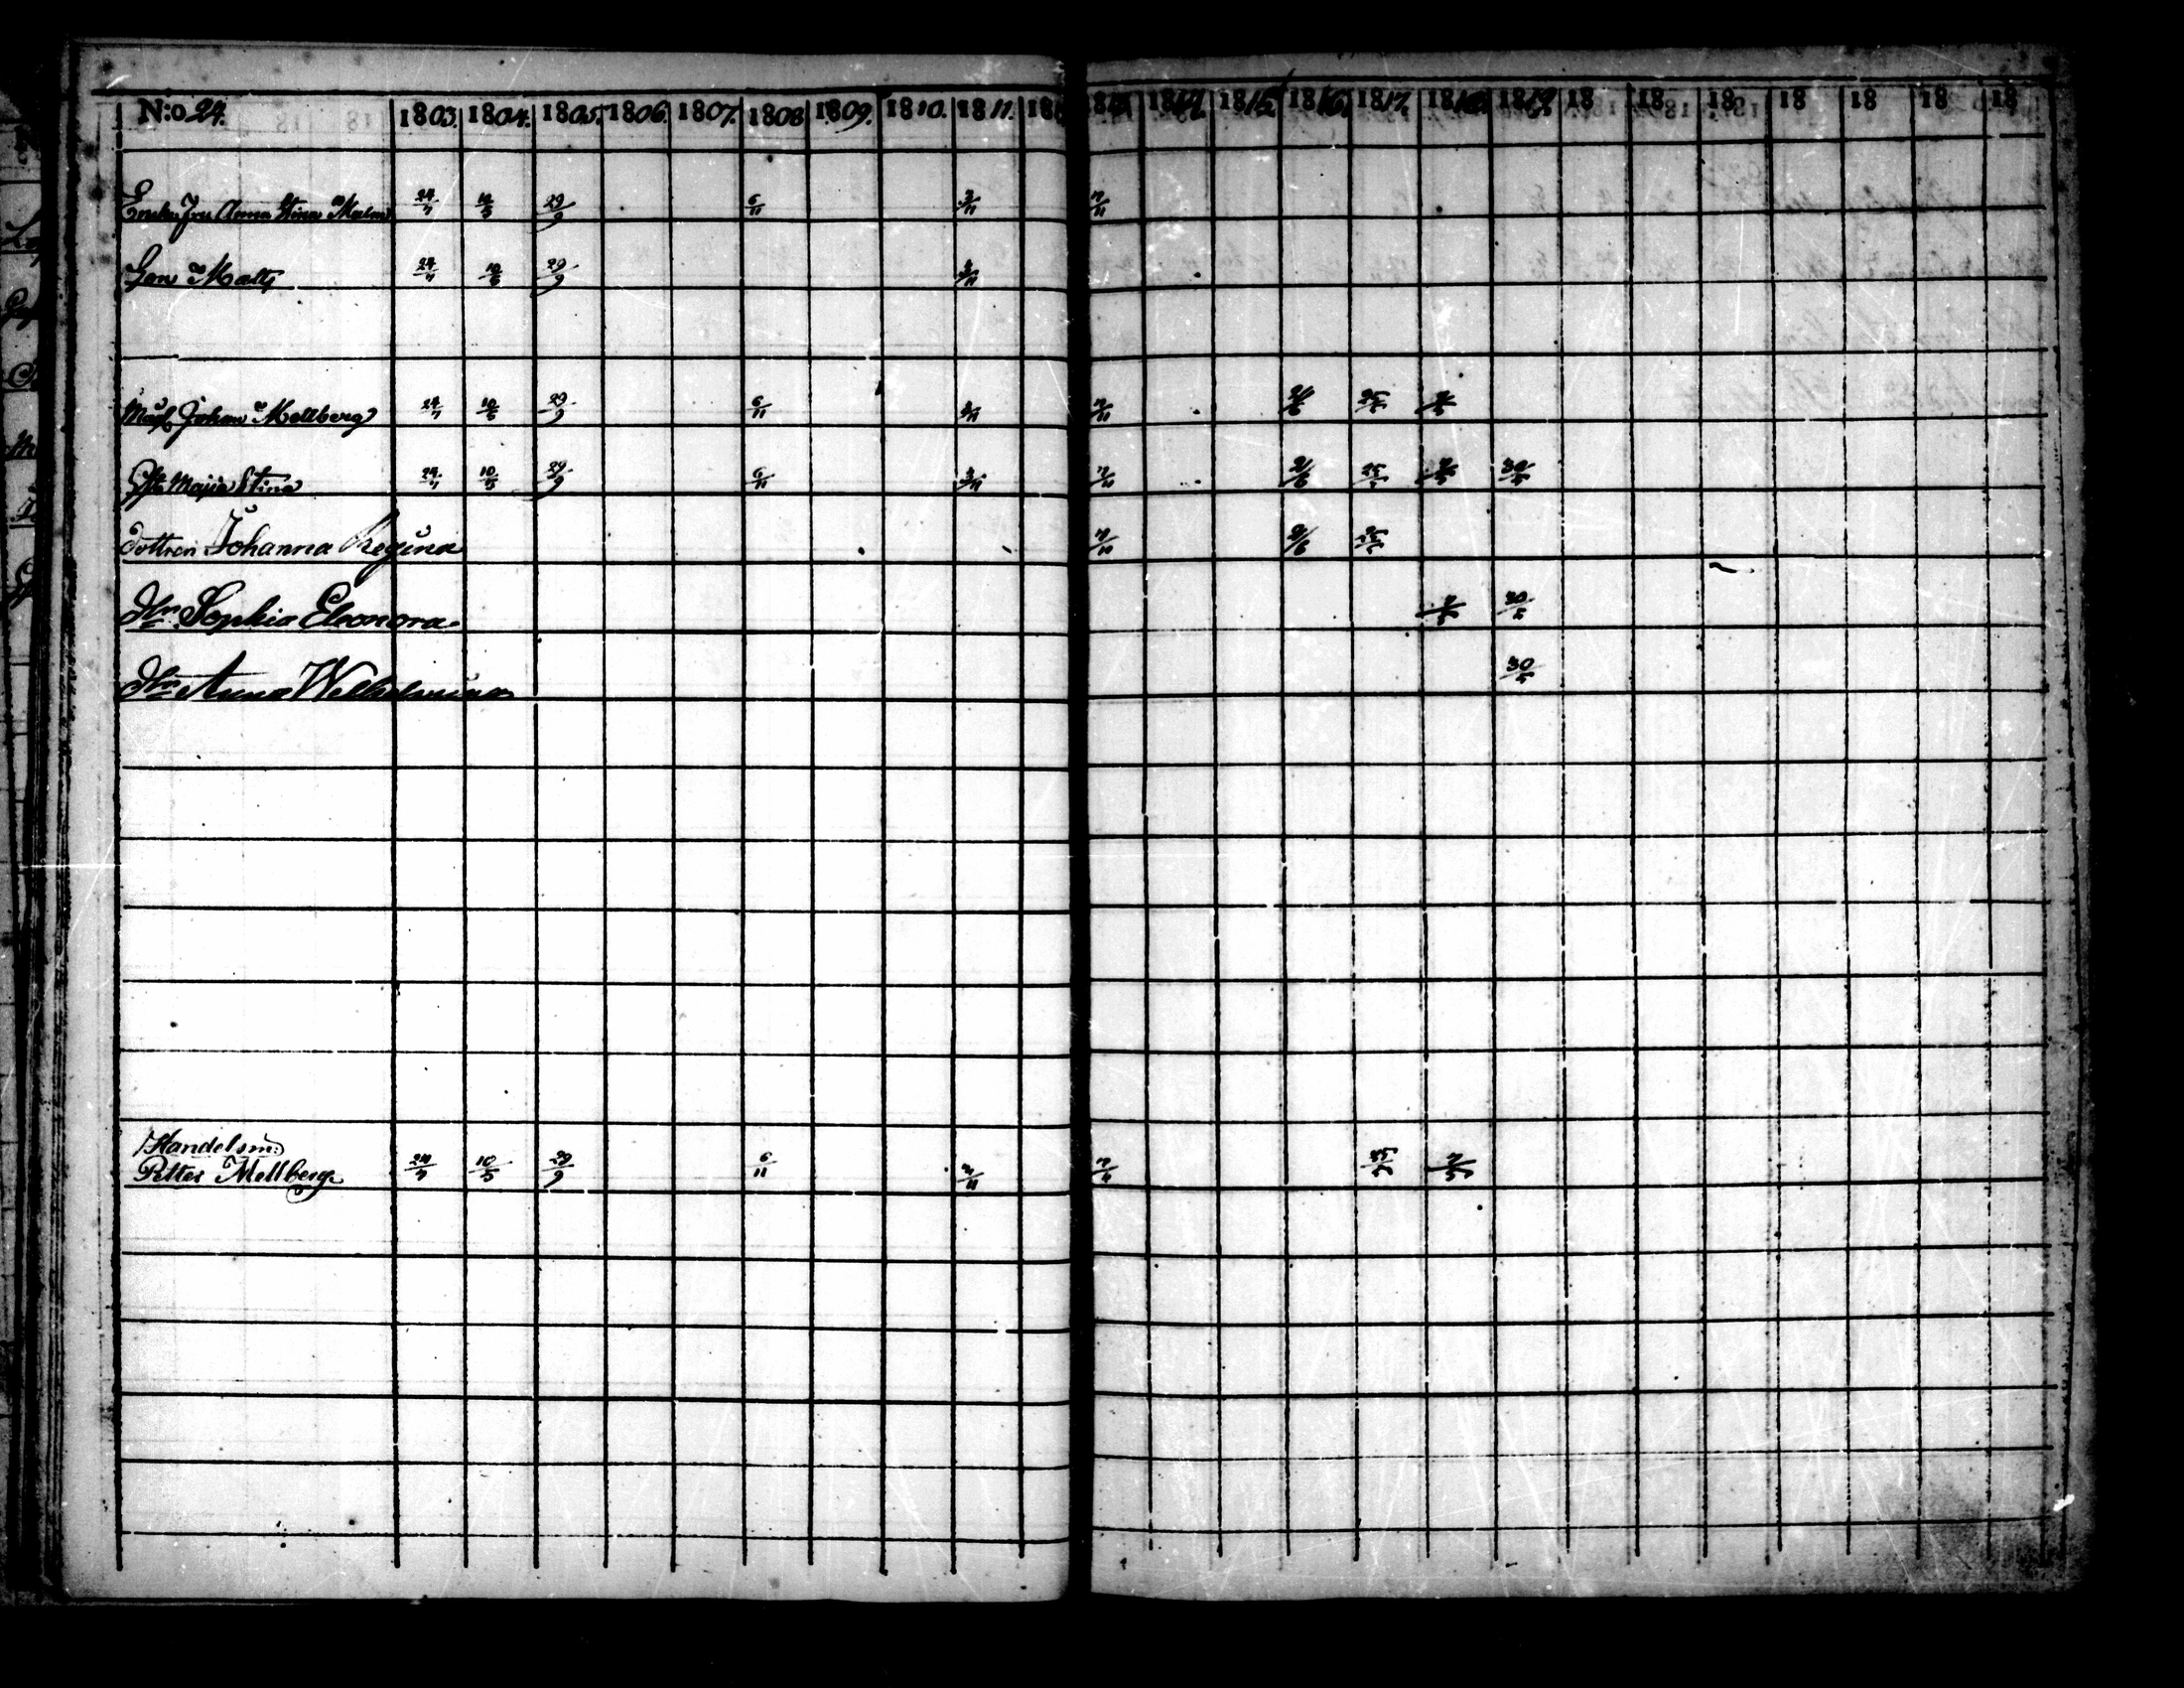 N:o 24. 1803. 1804. 1805. 1806. 1807. 1808 1809. 1810. 1811. 18 1814. 1815 1816. 1817. 1818. 1819. 18 18 18 18 18 18 18
Enke Fru Anna Stina Malm 24/7 10/5 29/9 6/11 3/11 7/11
Son Matts 24/7 10/5 29/9 3/11
Johan Mellberg 24/7 10/5 29/9 6/11 3/11 7/11 2/6 25/5 7/5
Maja Stina 24/7 10/5 29/9 6/11 3/11 7/11 2/6 25/5 7/5 30/5
dottren Johanna Regina 7/11 2/6 25/5
Dn Sophia Eleonora 7/5 30/5
Dn Anna Welhelmina 30/5
Handelsm:
Petter Mellberg 24/7 10/5 29/9 6/11 3/11 7/11 25/5 7/5